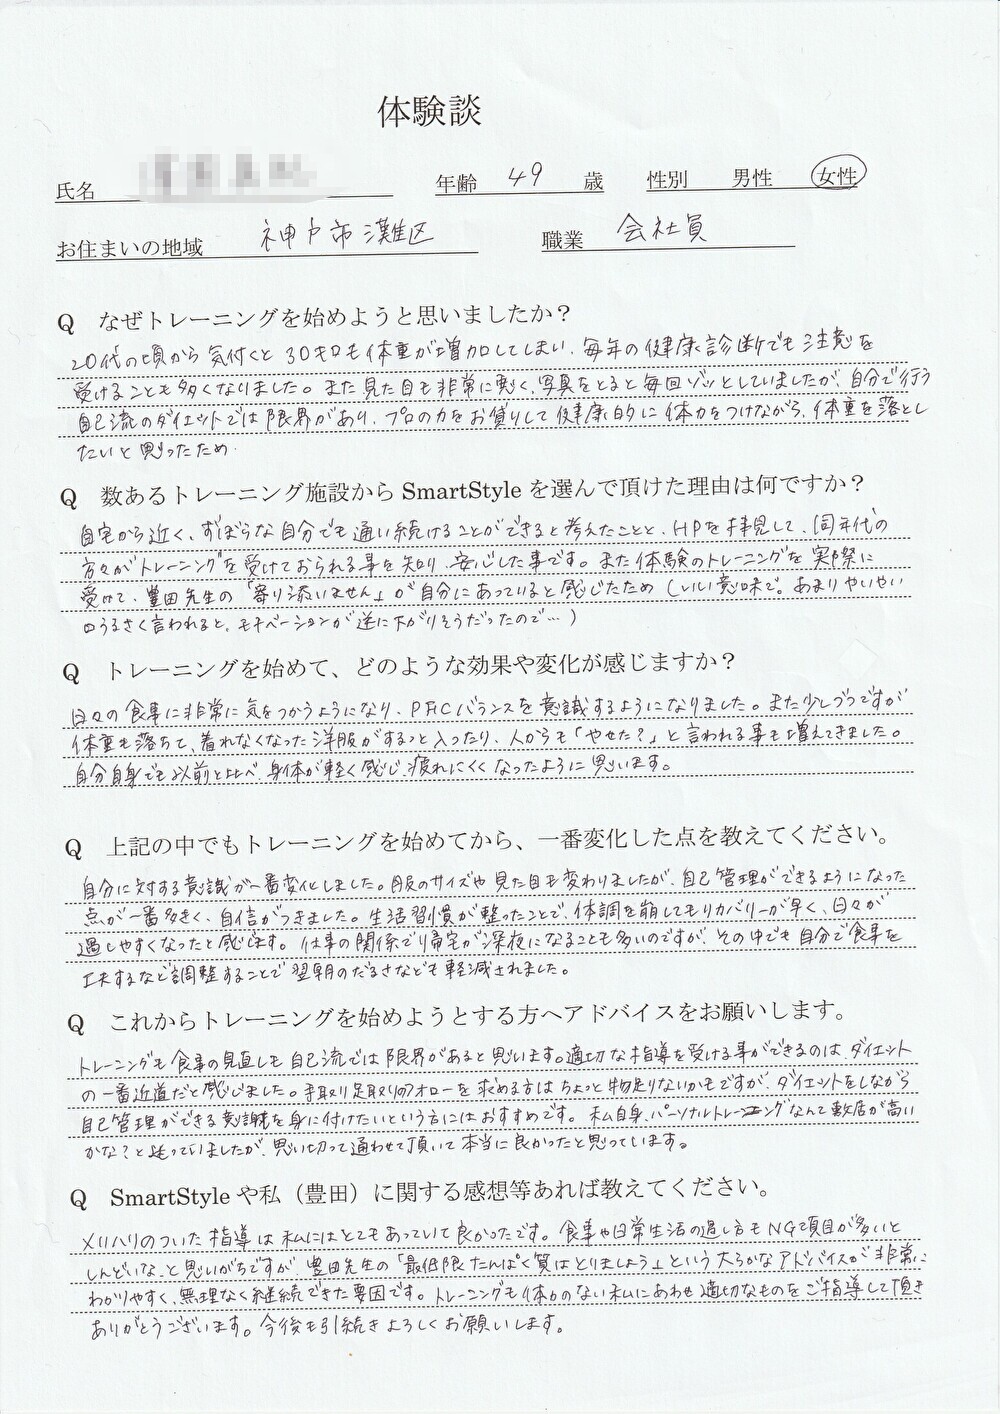 体験談
氏名 年齢 49 歳 性別 男性 女性
お住まいの地域 神戸市灘区 職業 会社員
Q なぜトレーニングを始めようと思いましたか？
20代の頃から気付くと30キロも体重が増加してしまい、毎年の健康診断でも注意を
受けることも多くなりました。また見た目も非常に悪く、写真をとると毎回ゾッとしていましたが、自分で行う
自己流のダイエットでは限界があり、プロの力をお貸りして健康的に体力をつけながら、体重を落とし
たいと思ったため.
Q 数あるトレーニング施設から SmartStyle を選んで頂けた理由は何ですか？
自宅から近く、ずぼらな自分でも通い続けることができると考えたことと、HPを拝見して、同年代の
方々がトレーニングを受けておられる事を知り、安心した事です。また体験のトレーニングを実際に
受けて、豊田先生の「寄り添いません」が自分にあっていると感じたため（いい意味で。あまりやいやい
口うるさく言われると、モチベーションが逆に下がりそうだったので…）
Q トレーニングを始めて、どのような効果や変化が感じますか？
日々の食事に非常に気をつかうようになり、PFCバランスを意識するようになりました。また少しづつですが
体重も落ちて、着れなくなった洋服がするっと入ったり、人からも「やせた？」と言われる事も増えてきました。
自分自身でも以前と比べ、身体が軽く感じ、疲れにくくなったように思います。
Q 上記の中でもトレーニングを始めてから、一番変化した点を教えてください。
自分に対する意識が一番変化しました。服のサイズや見た目も変わりましたが、自己管理ができるようになった
点が一番大きく、自信がつきました。生活習慣が整ったことで、体調を崩してもリカバリーが早く、日々が
過しやすくなったと感じます。仕事の関係で帰宅が深夜になることも多いのですが、その中でも自分で食事を
工夫するなど調整することで翌朝のだるさなども軽減されました。
Q これからトレーニングを始めようとする方へアドバイスをお願いします。
トレーニングも食事の見直しも自己流では限界があると思います。適切な指導を受ける事ができるのは、ダイエット
の一番近道だと感じました。手取り足取りのフォローを求める方はちょっと物足りないかもですが、ダイエットをしながら
自己管理ができる意識を身に付けたいという方にはおすすめです。私自身、パーソナルトレーニングなんて敷居が高い
かな？と思っていましたが、思い切って通わせて頂いて本当に良かったと思っています。
Q SmartStyle や私（豊田）に関する感想等あれば教えてください。
メリハリのついた指導は私にはとてもあっていて良かったです。食事や日常生活の過し方もNG項目が多いと
しんどいな、と思いがちですが、豊田先生の「最低限たんぱく質はとりましょう」という大らかなアドバイスが非常に
わかりやすく、無理なく継続できた要因です。トレーニングも体力のない私にあわせ適切なものをご指導して頂き
ありがとうございます。今後も引続きよろしくお願いします。